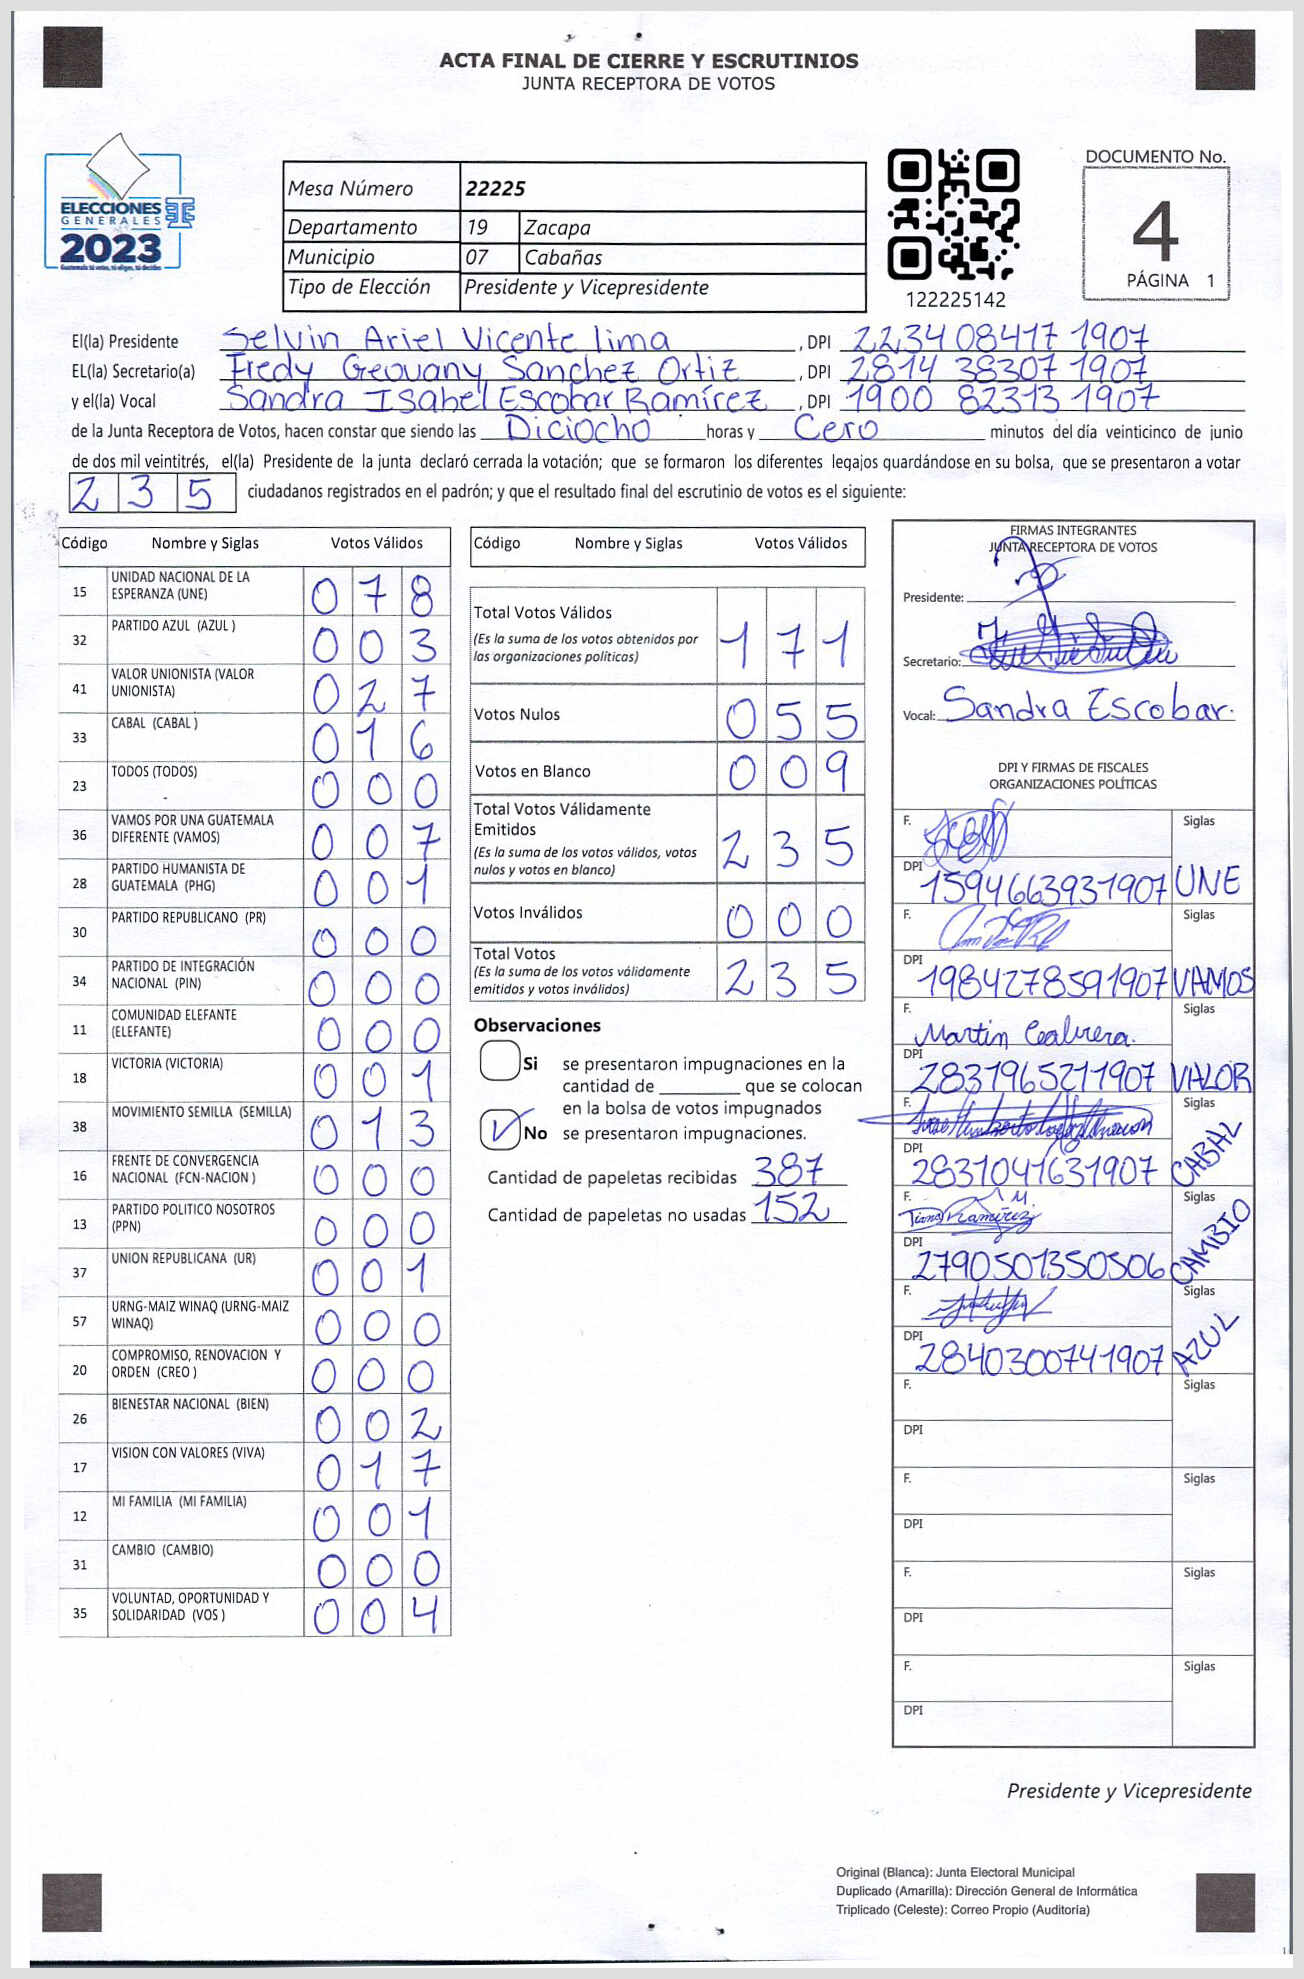 ACTA FINAL DE CIERRE Y ESCRUTINIOS
JUNTA RECEPTORA DE VOTOS
ELECCIONES
GENERALES
2023
Mesa Número 22225
Departamento 19 Zacapa
Municipio 07 Cabañas
Tipo de Elección Presidente y Vicepresidente
122225142
DOCUMENTO No.
4
PÁGINA 1
El(la) Presidente Selvin Ariel Vicente lima, DPI 2234 08417 1907
EL(la) Secretario(a) Fredy Geovany Sanchez Ortiz, DPI 2814 38307 1907
y el(la) Vocal Sandra Isabel Escobar Ramírez, DPI 1900 82313 1907
de la Junta Receptora de Votos, hacen constar que siendo las Diciocho horas y Cero minutos del día veinticinco de junio
de dos mil veintitrés, el(la) Presidente de la junta declaró cerrada la votación; que se formaron los diferentes legajos guardándose en su bolsa, que se presentaron a votar
235 ciudadanos registrados en el padrón; y que el resultado final del escrutinio de votos es el siguiente:
Código Nombre y Siglas Votos Válidos
15 UNIDAD NACIONAL DE LA ESPERANZA (UNE) 078
32 PARTIDO AZUL (AZUL ) 003
41 VALOR UNIONISTA (VALOR UNIONISTA) 027
33 CABAL (CABAL ) 016
23 TODOS (TODOS) 000
36 VAMOS POR UNA GUATEMALA DIFERENTE (VAMOS) 007
28 PARTIDO HUMANISTA DE GUATEMALA (PHG) 001
30 PARTIDO REPUBLICANO (PR) 000
34 PARTIDO DE INTEGRACIÓN NACIONAL (PIN) 000
11 COMUNIDAD ELEFANTE (ELEFANTE) 000
18 VICTORIA (VICTORIA) 001
38 MOVIMIENTO SEMILLA (SEMILLA) 013
16 FRENTE DE CONVERGENCIA NACIONAL (FCN-NACION ) 000
13 PARTIDO POLITICO NOSOTROS (PPN) 000
37 UNION REPUBLICANA (UR) 001
57 URNG-MAIZ WINAQ (URNG-MAIZ WINAQ) 000
20 COMPROMISO, RENOVACION Y ORDEN (CREO ) 000
26 BIENESTAR NACIONAL (BIEN) 002
17 VISION CON VALORES (VIVA) 017
12 MI FAMILIA (MI FAMILIA) 001
31 CAMBIO (CAMBIO) 000
35 VOLUNTAD, OPORTUNIDAD Y SOLIDARIDAD (VOS ) 004
Código Nombre y Siglas Votos Válidos
Total Votos Válidos 171
(Es la suma de los votos obtenidos por
las organizaciones políticas)
Votos Nulos 055
Votos en Blanco 009
Total Votos Válidamente
Emitidos 235
(Es la suma de los votos válidos, votos
nulos y votos en blanco)
Votos Inválidos 000
Total Votos 235
(Es la suma de los votos válidamente
emitidos y votos inválidos)
Observaciones
Si se presentaron impugnaciones en la
cantidad de ________ que se colocan
en la bolsa de votos impugnados
No se presentaron impugnaciones.
Cantidad de papeletas recibidas 387
Cantidad de papeletas no usadas 152
FIRMAS INTEGRANTES
JUNTA RECEPTORA DE VOTOS
Presidente:
Secretario:
Vocal: Sandra Escobar.
DPI Y FIRMAS DE FISCALES
ORGANIZACIONES POLÍTICAS
F. Siglas
DPI 1594663931907 UNE
F. Siglas
DPI 1984278591907 VAMOS
F. Martin Cabrera. Siglas
DPI 2831965211907 VALOR
F. Siglas
DPI 2831041631907 CABAL
F. Ramírez Siglas
DPI 2790501350506 CAMBIO
F. Siglas
DPI 2840300741907 AZUL
F. Siglas
DPI
F. Siglas
DPI
F. Siglas
DPI
F. Siglas
DPI
Presidente y Vicepresidente
Original (Blanca): Junta Electoral Municipal
Duplicado (Amarilla): Dirección General de Informática
Triplicado (Celeste): Correo Propio (Auditoría)